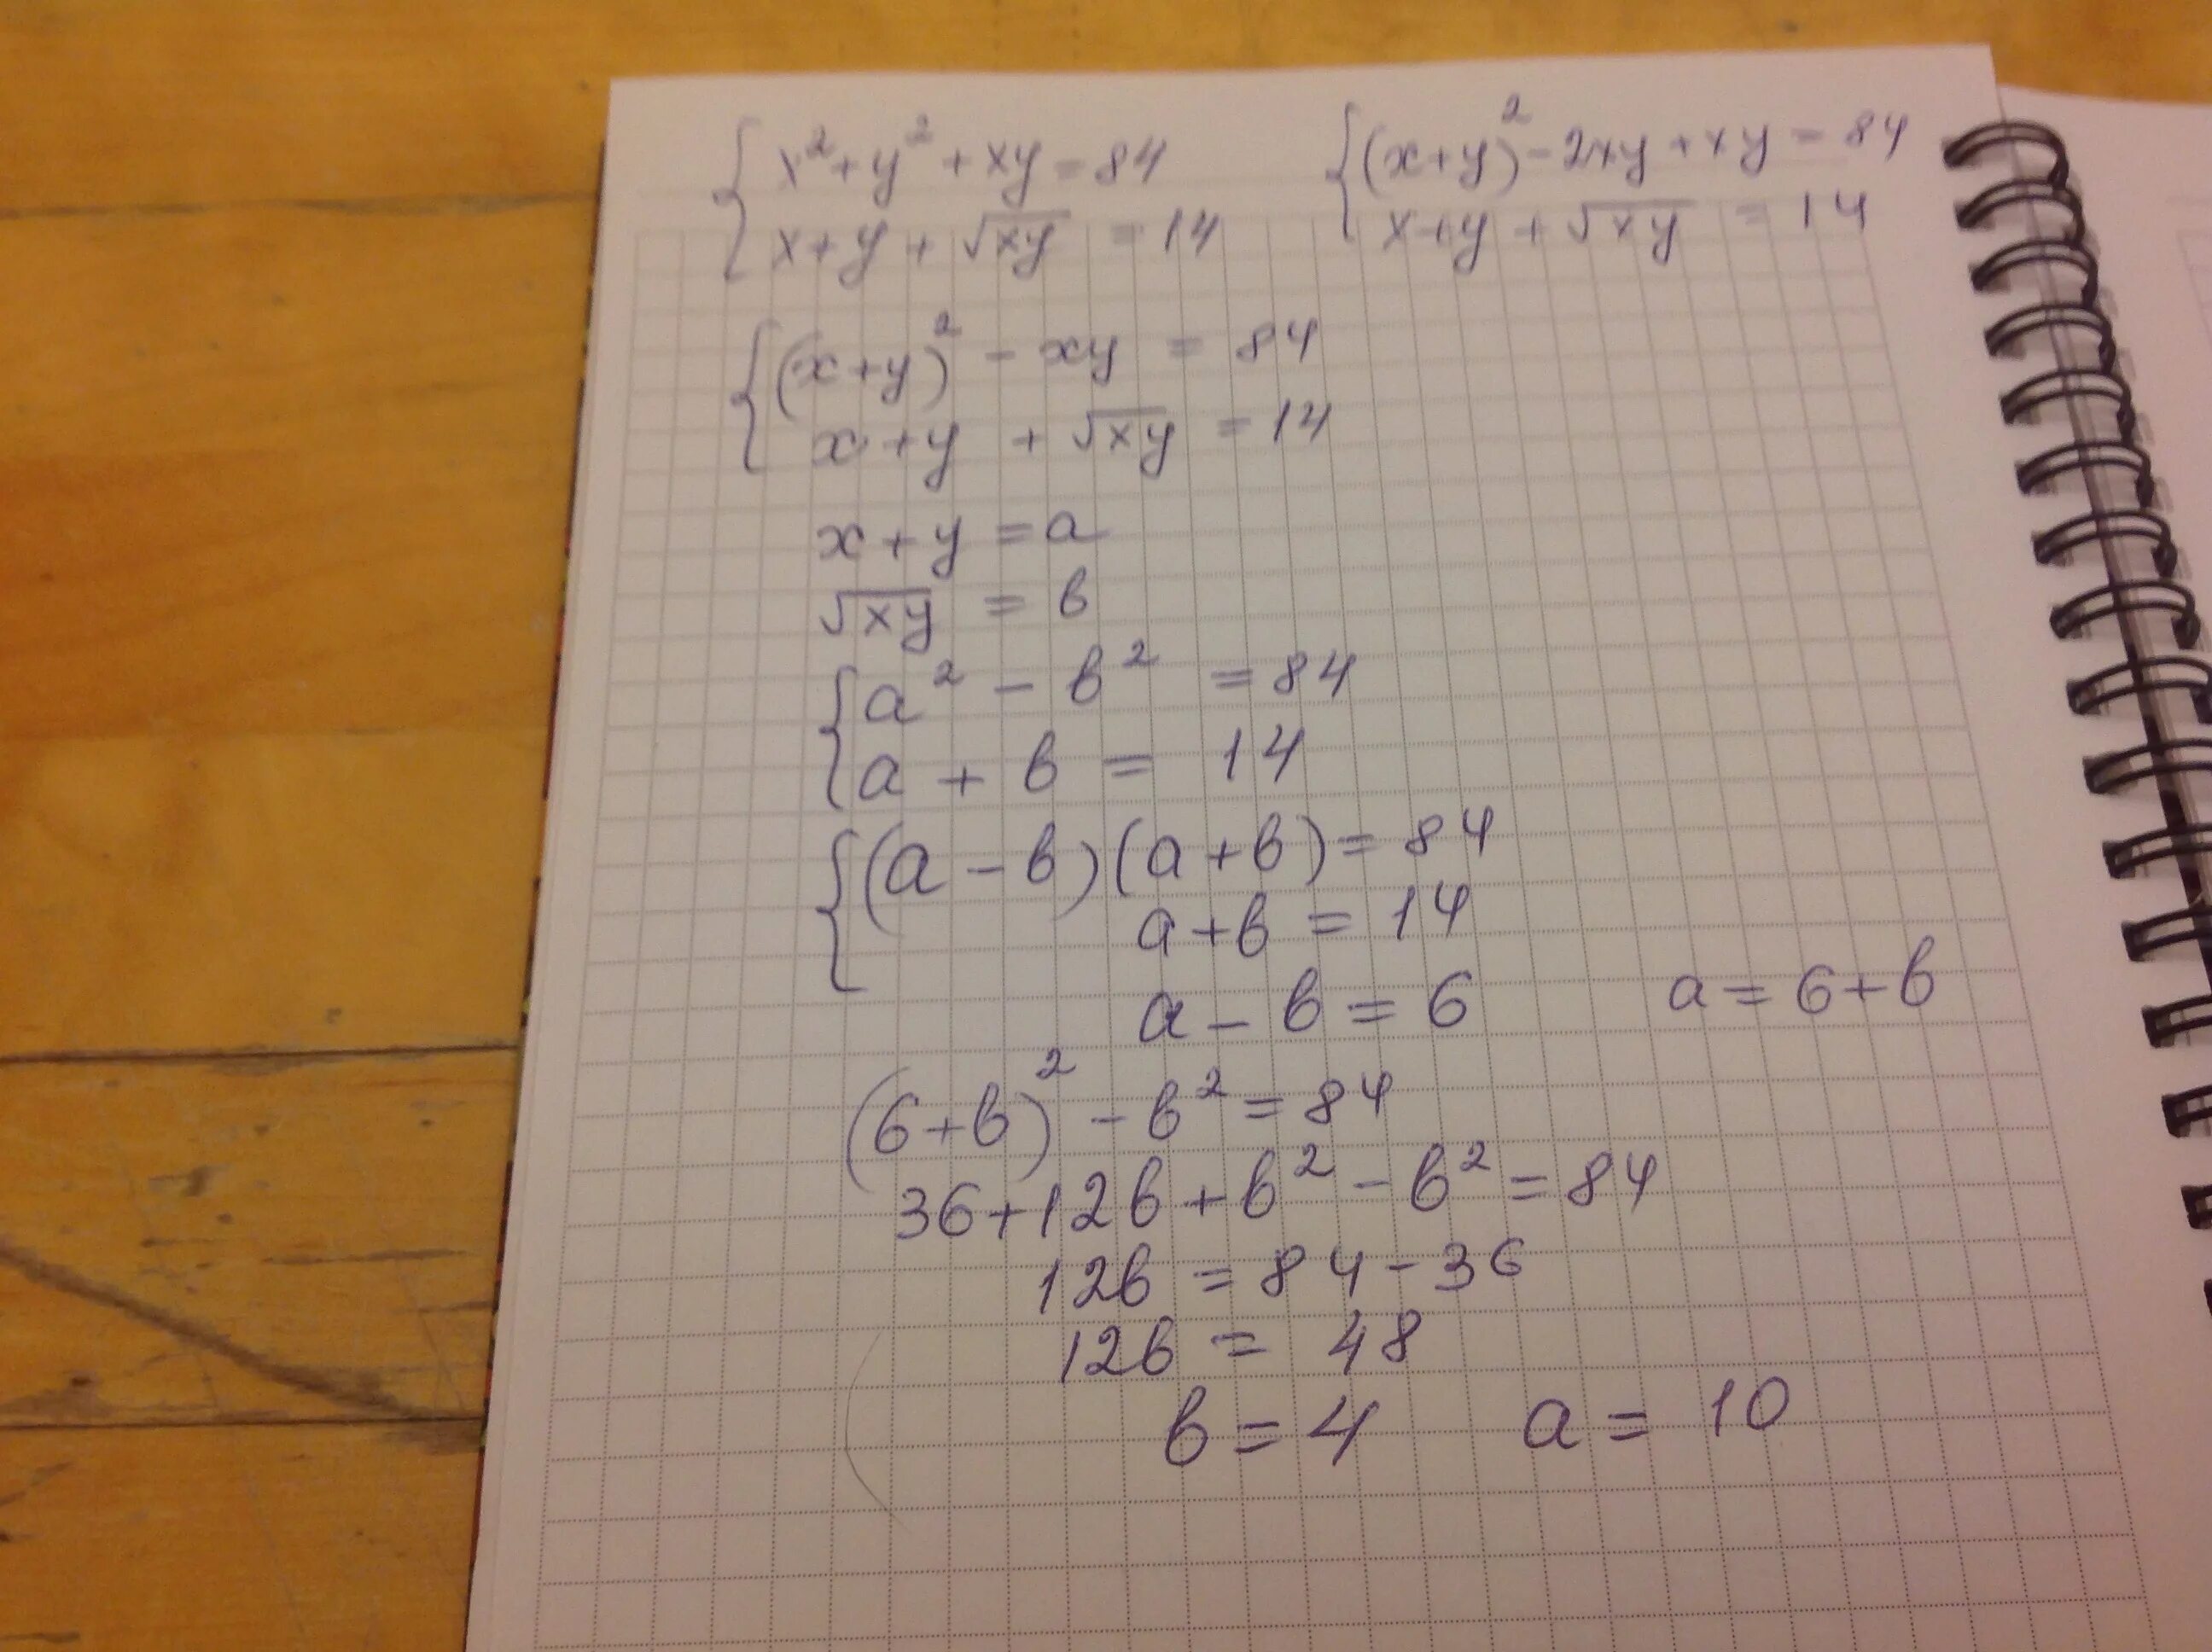 x² + y² + xy = 84
x + y + √xy = 14
(x+y)² - 2xy + xy = 84
x + y + √xy = 14
(x+y)² - xy = 84
x + y + √xy = 14
x + y = a
√xy = в
a² - в² = 84
a + в = 14
(a - в)(a + в) = 84
a + в = 14
a - в = 6
a = 6 + в
(6 + в)² - в² = 84
36 + 12в + в² - в² = 84
12в = 84 - 36
12в = 48
в = 4 a = 10